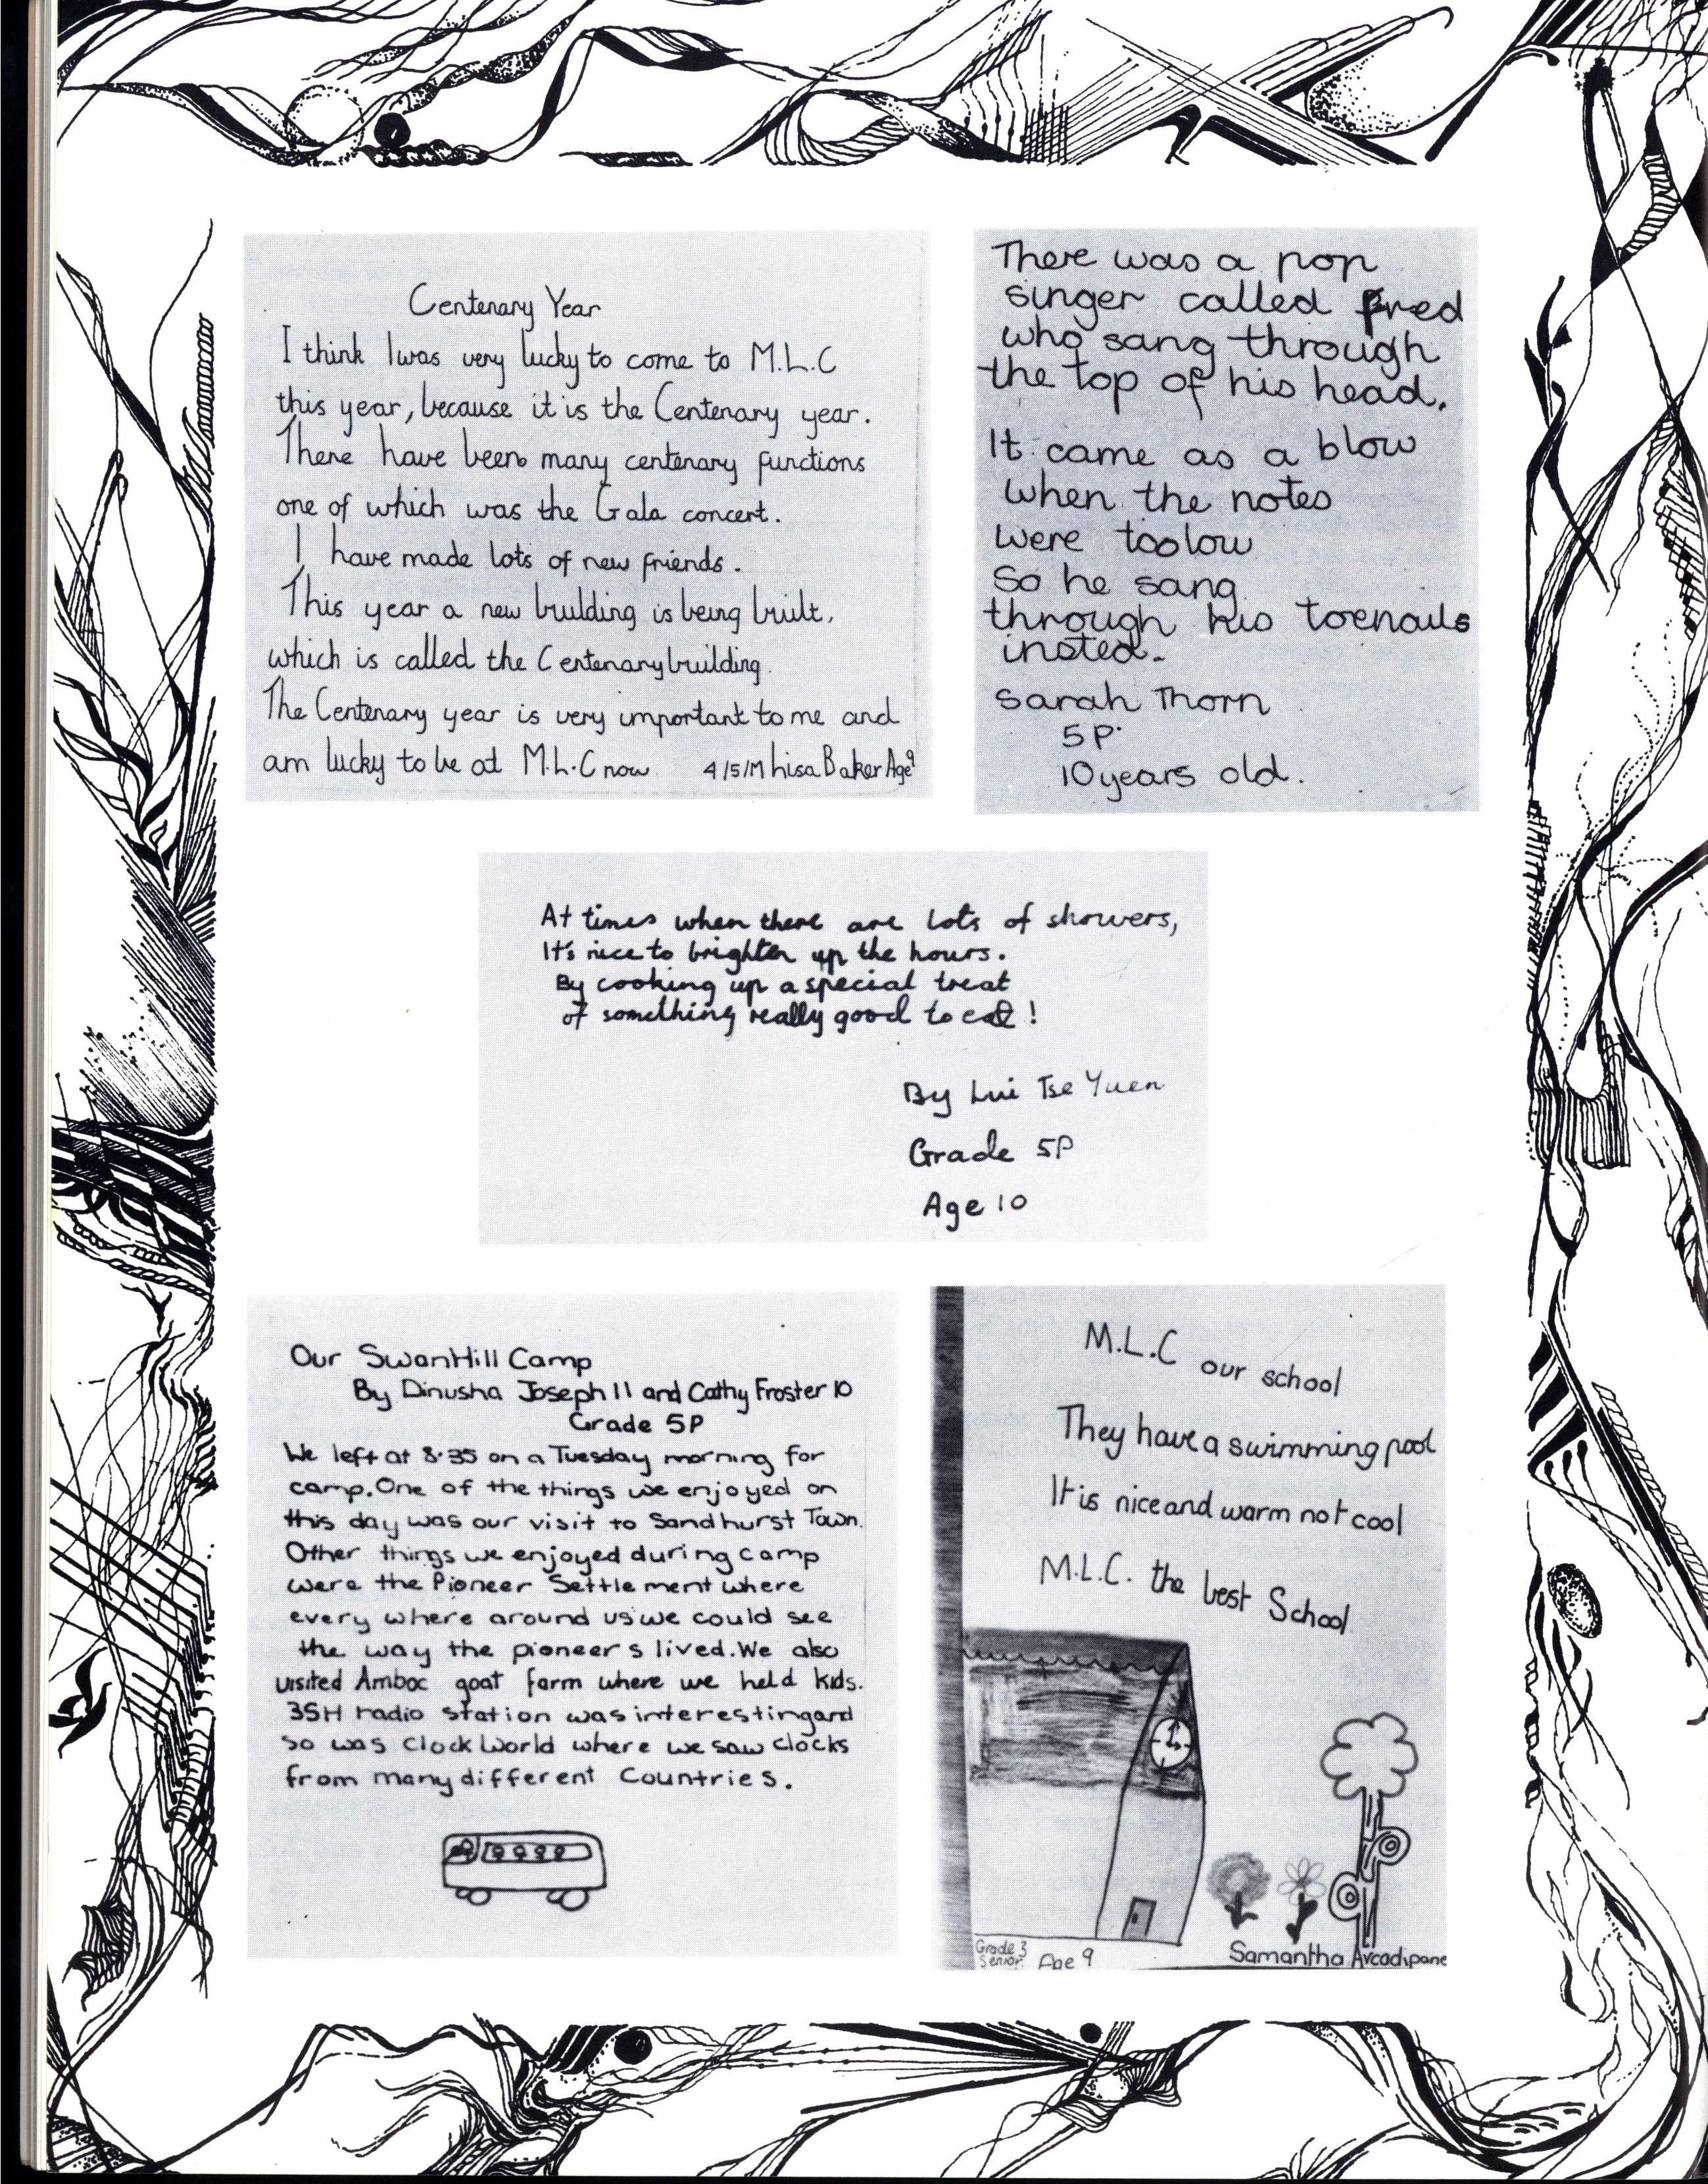 Centenary Year
I think I was very lucky to come to M.L.C
this year, because it is the Centenary year.
There have been many centenary functions
one of which was the Gala concert.
I have made lots of new friends.
This year a new building is being built,
which is called the Centenary building.
The Centenary year is very important to me and
am lucky to be at M.L.C now. 4/5/M Lisa Baker Age 9
There was a pop
singer called Fred
who sang through
the top of his head.
It came as a blow
when the notes
were too low
So he sang
through his toenails
insted.
Sarah Thorn
5P.
10 years old.
At times when there are lots of showers,
It's nice to brighten up the hours.
By cooking up a special treat
of something really good to eat!
By Lui Tse Yuen
Grade 5P
Age 10
Our SwanHill Camp
By Dinusha Joseph 11 and Cathy Froster 10
Grade 5P
We left at 8.35 on a Tuesday morning for
camp. One of the things we enjoyed on
this day was our visit to Sandhurst Town.
Other things we enjoyed during camp
were the Pioneer Settlement where
every where around us we could see
the way the pioneers lived. We also
visited Amboc goat farm where we held kids.
3SH radio station was interesting and
so was Clock World where we saw clocks
from many different Countries.
M.L.C our school
They have a swimming pool
It is nice and warm not cool
M.L.C. the best School
Grade 3
Senior. Age 9
Samantha Arcadipane